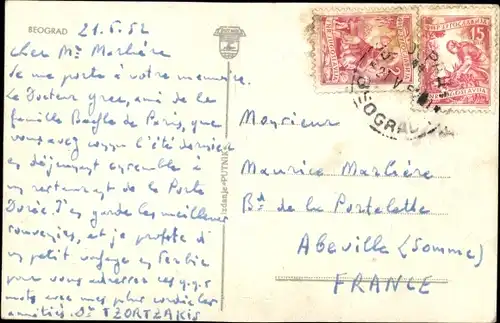 BEOGRAD
21.5.52
Cher Mr Marlière
Je me porte à votre memoire.
Le Docteur grec, ami de la
famille de Paris, que
vous avez connu l'été dernier
en déjeunant ensemble à
un restaurant de la Porte
Dorée. J'en garde les meilleurs
souvenirs, et je profite d'
un petit voyage en Serbie
pour vous adresser ces q.q.s
mots avec mes plus cordiales
amitiés. Dr TZORTZAKIS
Izdanje «PUTNIK»
15
BEOGRAD
Monsieur
Maurice Marlière
Bd de la Portelette
Abeville (Somme)
FRANCE